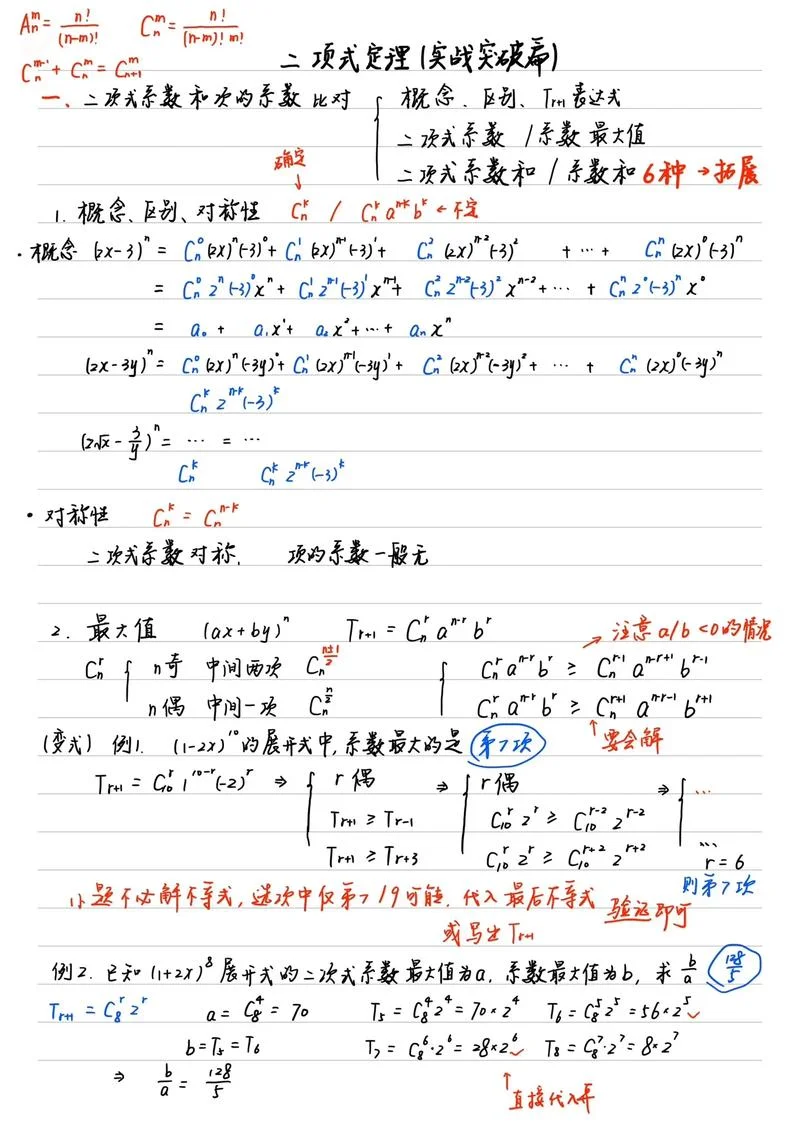 Aₙᵐ = n!/(n-m)!   Cₙᵐ = n!/(n-m)! m!
Cₙᵐ⁻¹ + Cₙᵐ = Cₙ₊₁ᵐ
二项式定理(实战突破篇)
一、二项式系数和项的系数比对 { 概念、区别、Tr+1表达式
二项式系数 / 系数最大值
二项式系数和 / 系数和 6种 → 拓展
确定
↓
1. 概念、区别、对称性 Cₙᵏ / Cₙᵏ aⁿ⁻ᵏ bᵏ ← 不定
· 概念 (2x-3)ⁿ = Cₙ⁰(2x)ⁿ(-3)⁰ + Cₙ¹(2x)ⁿ⁻¹(-3)¹ + Cₙ²(2x)ⁿ⁻²(-3)² + ⋯ + Cₙⁿ(2x)⁰(-3)ⁿ
= Cₙ⁰2ⁿ(-3)⁰xⁿ + Cₙ¹2ⁿ⁻¹(-3)¹xⁿ⁻¹ + Cₙ²2ⁿ⁻²(-3)²xⁿ⁻² + ⋯ + Cₙⁿ2⁰(-3)ⁿx⁰
= a₀ + a₁x¹ + a₂x² + ⋯ + aₙxⁿ
(2x-3y)ⁿ = Cₙ⁰(2x)ⁿ(-3y)⁰ + Cₙ¹(2x)ⁿ⁻¹(-3y)¹ + Cₙ²(2x)ⁿ⁻²(-3y)² + ⋯ + Cₙⁿ(2x)⁰(-3y)ⁿ
Cₙᵏ2ⁿ⁻ᵏ(-3)ᵏ
(2√x - 3/y)ⁿ = ⋯ = ⋯
Cₙᵏ   Cₙᵏ2ⁿ⁻ᵏ(-3)ᵏ
· 对称性 Cₙᵏ = Cₙⁿ⁻ᵏ
二项式系数对称, 项的系数一般无
2. 最大值 (ax+by)ⁿ   Tr+1 = Cₙʳ aⁿ⁻ʳ bʳ → 注意 a/b < 0 的情况
Cₙʳ { n奇 中间两项 Cₙ^((n±1)/2)   { Cₙʳ aⁿ⁻ʳ bʳ ≥ Cₙʳ⁻¹ aⁿ⁻ʳ⁺¹ bʳ⁻¹
n偶 中间一项 Cₙ^(n/2)   Cₙʳ aⁿ⁻ʳ bʳ ≥ Cₙʳ⁺¹ aⁿ⁻ʳ⁻¹ bʳ⁺¹
↑要会解
(变式) 例1. (1-2x)¹⁰的展开式中,系数最大的是 第7项
Tr+1 = C₁₀ʳ 1¹⁰⁻ʳ(-2)ʳ ⇒ { r偶 ⇒ { r偶 ⇒ { ⋯
Tr+1 ≥ Tr-1   C₁₀ʳ 2ʳ ≥ C₁₀ʳ⁻² 2ʳ⁻²
Tr+1 ≥ Tr+3   C₁₀ʳ 2ʳ ≥ C₁₀ʳ⁺² 2ʳ⁺²   ⋯
r = 6
则第7项
小题不必解不等式,选项中仅第7/9可能. 代入最后不等式 验证即可
或写出Tr+1
例2. 已知(1+2x)⁸展开式的二项式系数最大值为a, 系数最大值为b, 求 b/a 128/5
Tr+1 = C₈ʳ 2ʳ   a = C₈⁴ = 70   T₅ = C₈⁴2⁴ = 70×2⁴   T₆ = C₈⁵2⁵ = 56×2⁵ ✓
b = T₅ = T₆   T₇ = C₈⁶·2⁶ = 28×2⁶ ✓   T₈ = C₈⁷·2⁷ = 8×2⁷
⇒ b/a = 128/5
↑直接代入